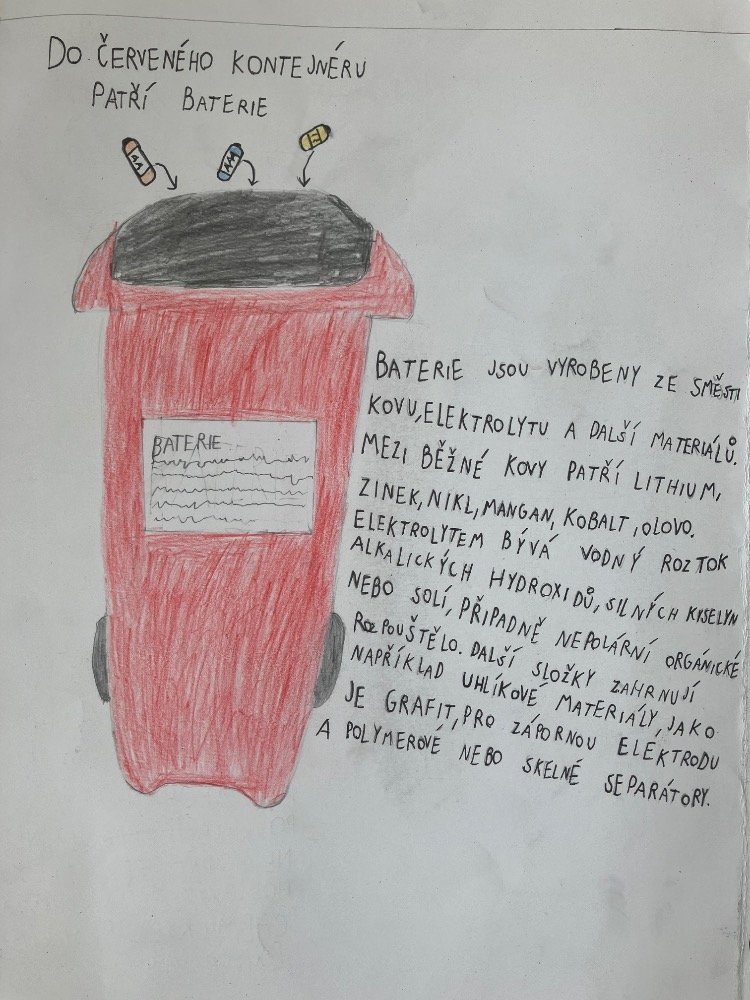 DO ČERVENÉHO KONTEJNÉRU
PATŘÍ BATERIE
BATERIE
BATERIE JSOU VYROBENY ZE SMĚSTI
KOVU, ELEKTROLYTU A DALŠÍ MATERIÁLŮ.
MEZI BĚŽNÉ KOVY PATŘÍ LITHIUM,
ZINEK, NIKL, MANGAN, KOBALT, OLOVO.
ELEKTROLYTEM BÝVÁ VODNÝ ROZTOK
ALKALICKÝCH HYDROXIDŮ, SILNÝCH KISELYN
NEBO SOLÍ, PŘIPADNĚ NEPOLÁRNÍ ORGÁNICKÉ
ROZPOUŠTĚLO. DALŠÍ SLOŽKY ZAHRNUJÍ
NAPŘÍKLAD UHLÍKOVÉ MATERIÁLY, JAKO
JE GRAFIT, PRO ZÁPORNOU ELEKTRODU
A POLYMEROVÉ NEBO SKELNÉ SEPARÁTORY.